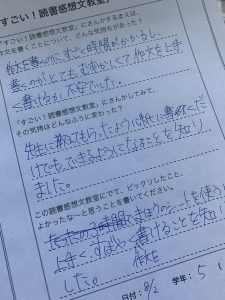 「すごい！読書感想文教室」
「すごい！読書感想文教室」にさんかするまえは、
作文を書くことについて、どんな気持ちがあった？
作文を書くのに、すごい時間がかかるし、
書くのがとてもむずかしくて、作文を上手
く書けるか不安でした。
「すごい！読書感想文教室」にさんかしてみて、
その気持はどんなふうに変わった？
先生に教えてもらったように紙に書いてくだ
けでも、できるようになることを知り
ました。
この読書感想文教室にでて、ビックリしたこと、
よかったな～と思うことを書いてください。
たったの3時間でまほうのシートを使うと
上手く、すばやく書けることを知り
作文
した。
日付：8/2 学年：5